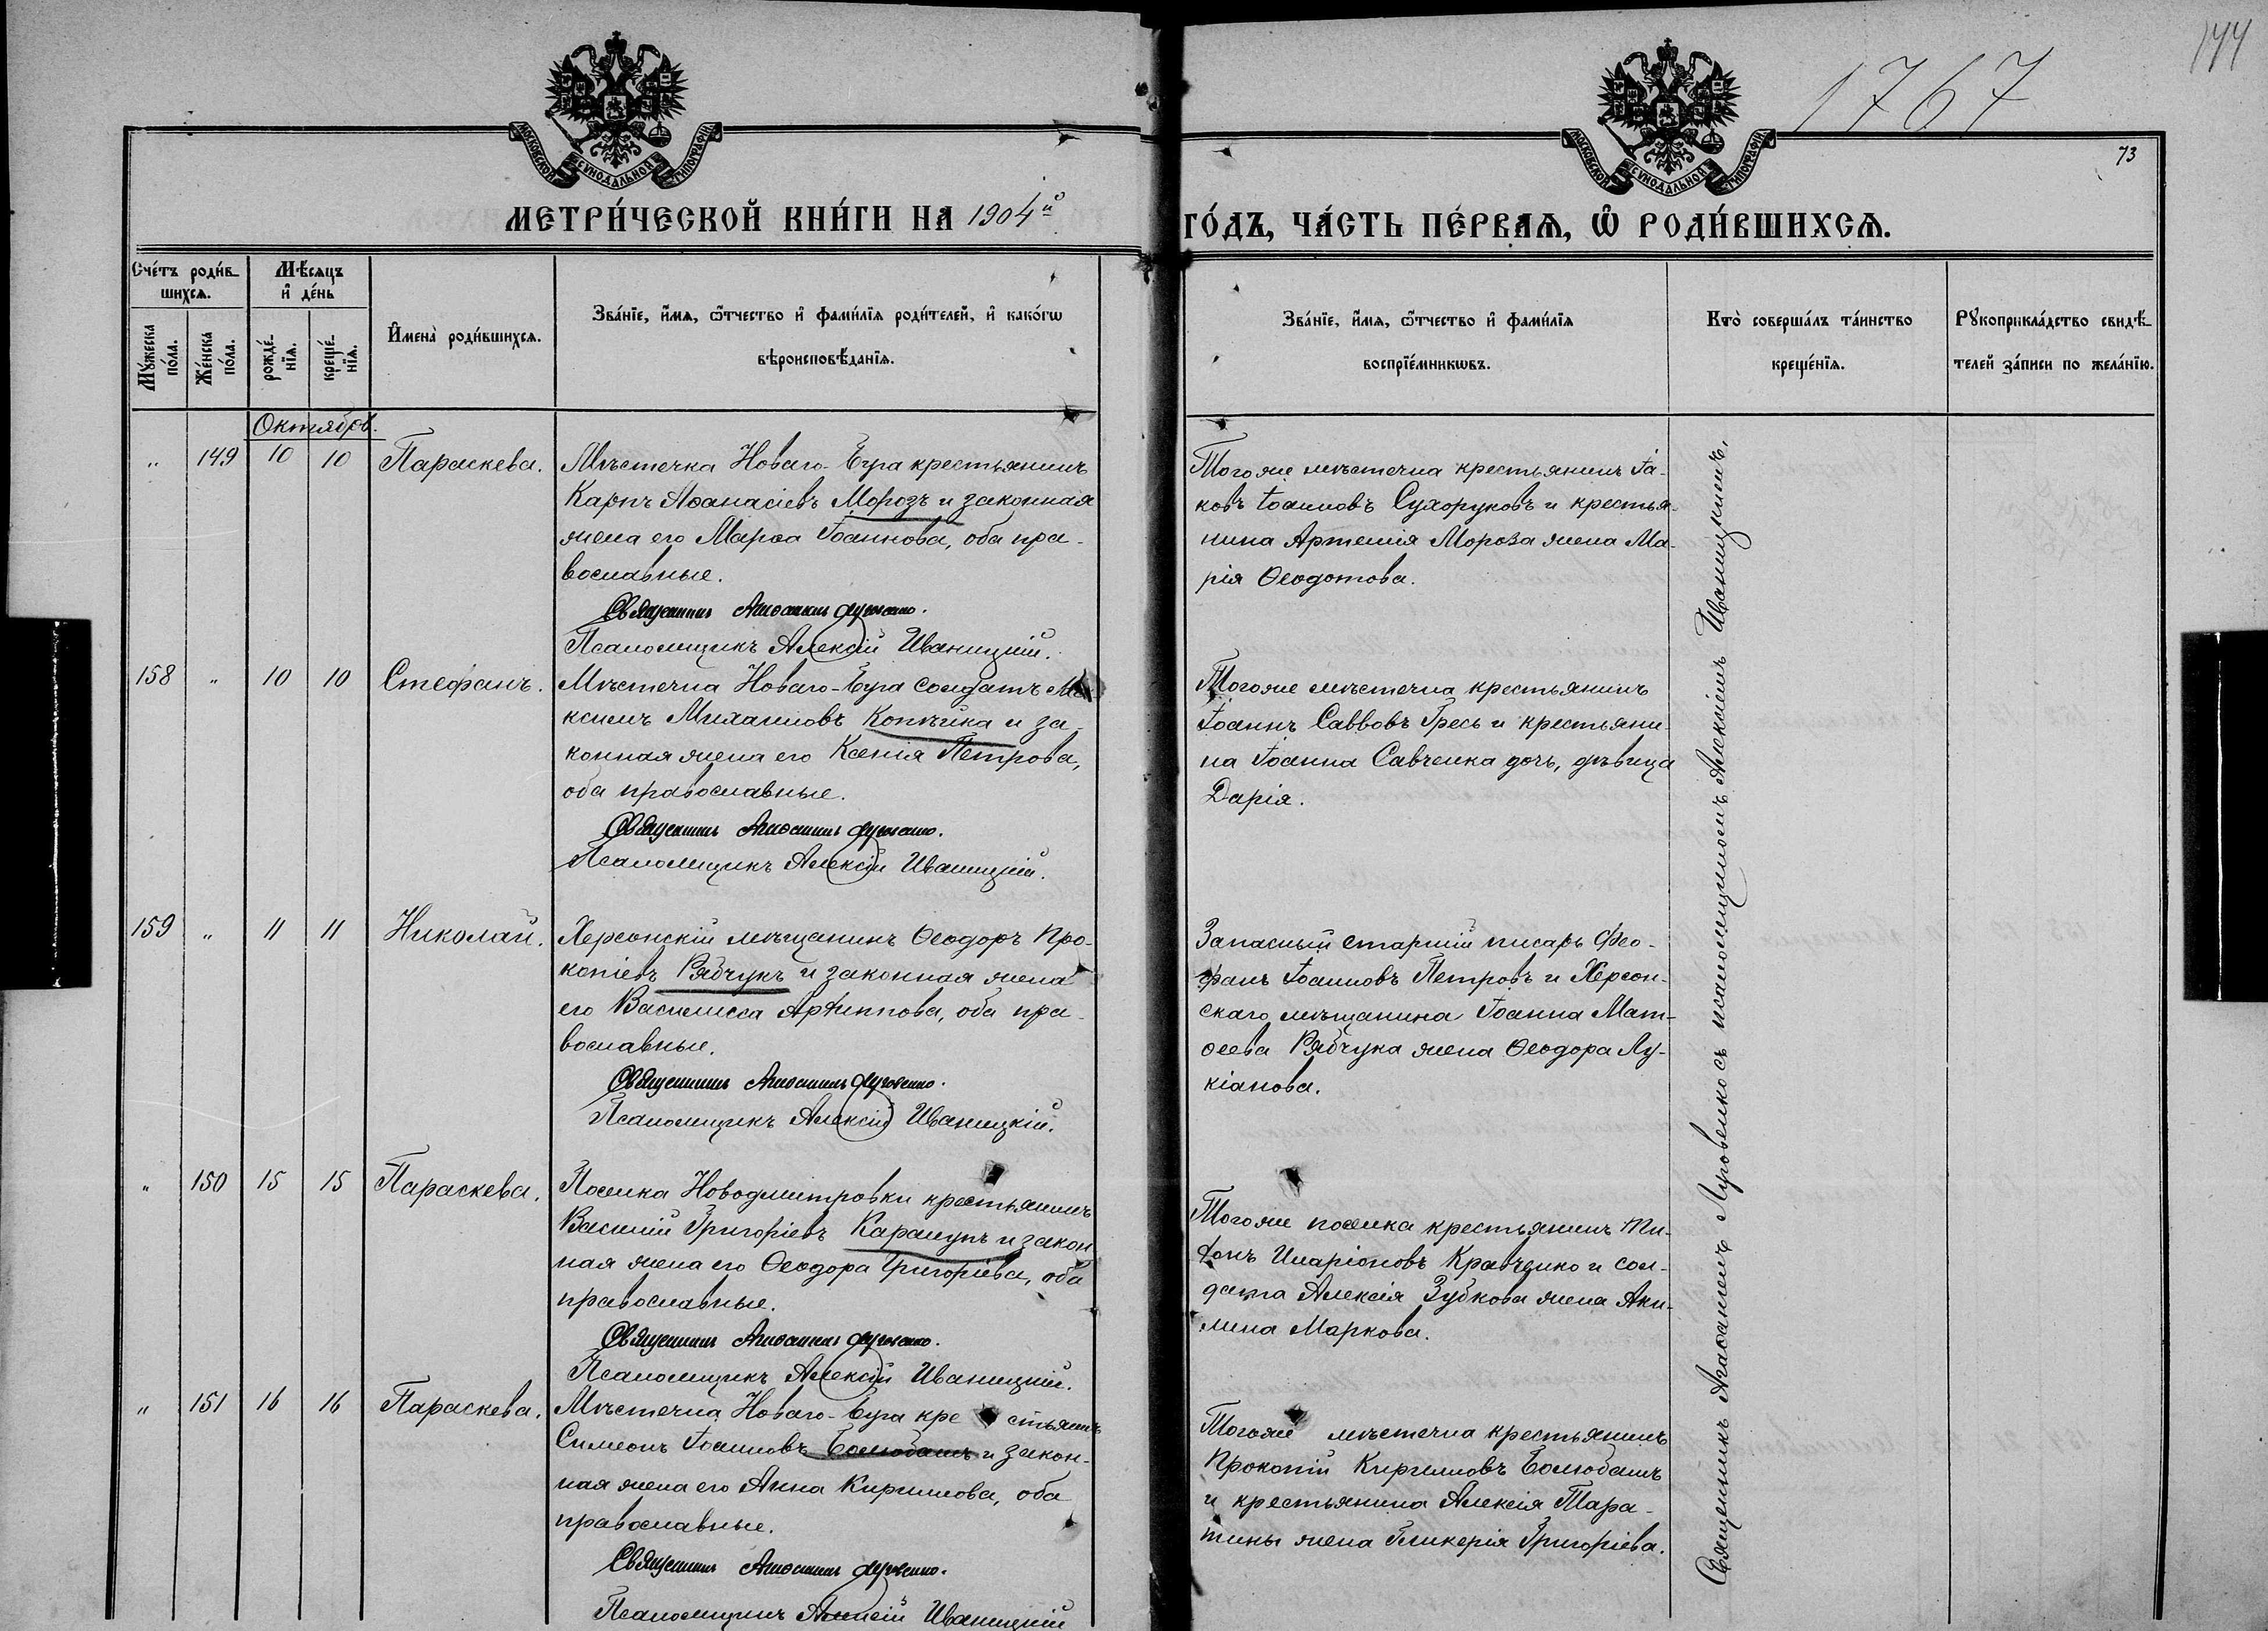 1767
144
МОСКОВСКОЙ СѴНОДАЛЬНОЙ ТИПОГРАФІИ
МОСКОВСКОЙ СѴНОДАЛЬНОЙ ТИПОГРАФІИ
73
МЕТРИ́ЧЕСКОЙ КНИ́ГИ НА 1904й
ГО́ДЪ, ЧА́СТЬ ПЕ́РВАѦ, Ѡ҆ РОДИ́ВШИХСѦ.
Сче́тъ роди́в-
шихсѧ.
Мѣ́сѧцъ
и҆ де́нь
Мꙋ́жеска по́ла.
Же́нска по́ла.
рожде́-
нїѧ.
креще́-
нїѧ.
И҆мена̀ роди́вшихсѧ.
Зва́нїе, и҆́мѧ, ѻ҆́тчество и҆ фами́лїѧ роди́телей, и҆ како́гѡ
вѣроисповѣ́данїѧ.
Зва́нїе, и҆́мѧ, ѻ҆́тчество и҆ фами́лїѧ
воспрїе́мникѡвъ.
Кто̀ соверша́лъ та́инство
креще́нїѧ.
Рꙋкоприкла́дство свидѣ́-
телей за́писи по жела́нїю.
Октябрь.
" 149 10 10 Параскева.
Мѣстечка Новаго-Буга крестьянинъ
Карпъ Аѳанасіевъ Морозъ и законная
жена его Марѳа Іоаннова, оба пра-
вославные.
Священникъ Агаѳаникъ Луговенко.
Псаломщикъ Алексій Иваницкій.
Тогоже мѣстечка крестьянинъ Іа-
ковъ Іоанновъ Сухоруковъ и крестья-
нина Артемія Мороза жена Ма-
рія Ѳеодотова.
158 " 10 10 Стефанъ.
Мѣстечка Новаго-Буга солдатъ Ма-
ксимъ Михаиловъ Копѣйка и за-
конная жена его Ксенія Петрова,
оба православные.
Священникъ Агаѳаникъ Луговенко.
Псаломщикъ Алексій Иваницкій.
Тогоже мѣстечка крестьянинъ
Іоаннъ Саввовъ Гресь и крестьяни-
на Іоанна Савченка дочь, дѣвица
Дарія.
159 " 11 11 Николай.
Херсонскій мѣщанинъ Ѳеодоръ Про-
копіевъ Рябчукъ и законная жена
его Василисса Архиппова, оба пра-
вославные.
Священникъ Агаѳаникъ Луговенко.
Псаломщикъ Алексій Иваницкій.
Запасный старшій писарь Фео-
фанъ Іоанновъ Петровъ и Херсон-
скаго мѣщанина Іоанна Мат-
ѳеева Рябчука жена Ѳеодора Лу-
кіанова.
" 150 15 15 Параскева.
Поселка Новодмитровки крестьянинъ
Василій Григоріевъ Карамунъ и закон
ная жена его Ѳеодора Григоріева, оба
православные.
Священникъ Агаѳаникъ Луговенко.
Псаломщикъ Алексій Иваницкій.
Тогоже поселка крестьянинъ Ти-
хонъ Иларіоновъ Кравченко и сол-
дата Алексія Зубкова жена Аки-
лина Маркова.
" 151 16 16 Параскева.
Мѣстечка Новаго-Буга крестьянинъ
Симеонъ Іоанновъ Болюбашъ и закон-
ная жена его Анна Кириллова, оба
православные.
Священникъ Агаѳаникъ Луговенко.
Псаломщикъ Алексій Иваницкій
Тогоже мѣстечка крестьянинъ
Прокопій Кирилловъ Болюбашъ
и крестьянина Алексія Тара-
тины жена Гликерія Григоріева.
Священникъ Агаѳаникъ Луговенко съ псаломщикомъ Алексіемъ Иваницкимъ.